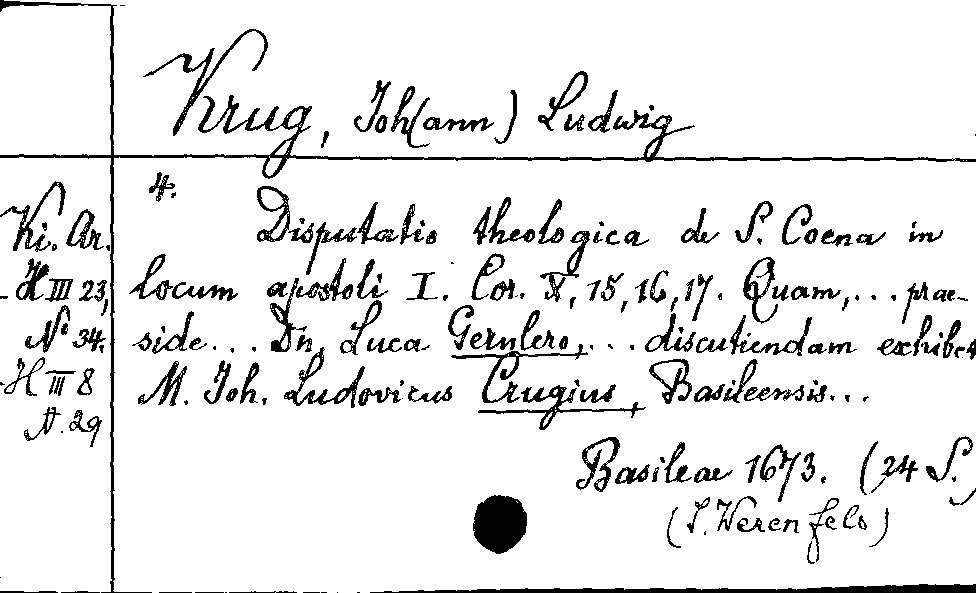 Krug, Joh(ann) Ludwig
4.
Disputatio theologica de S. Coena in
locum apostoli I. Cor. X, 15, 16, 17. Quam, ... prae-
side ... Dn. Luca Gernlero, ... discutiendam exhibet
M. Joh. Ludovicus Crugius, Basileensis ...
Basileae 1673. (24 S.)
(S. Werenfels)
Ki. Ar.
H III 23,
No 34.
H III 8
N. 29